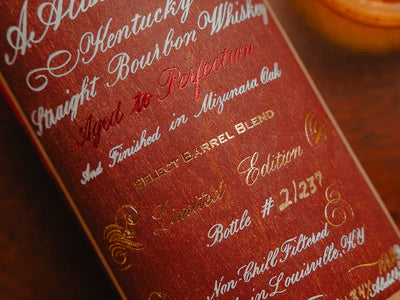 Kentucky
Straight Bourbon Whiskey
Aged to Perfection
And Finished in Mizunara Oak
SELECT BARREL BLEND
Limited Edition
Bottle # 2/237
Non-Chill Filtered
in Louisville, KY